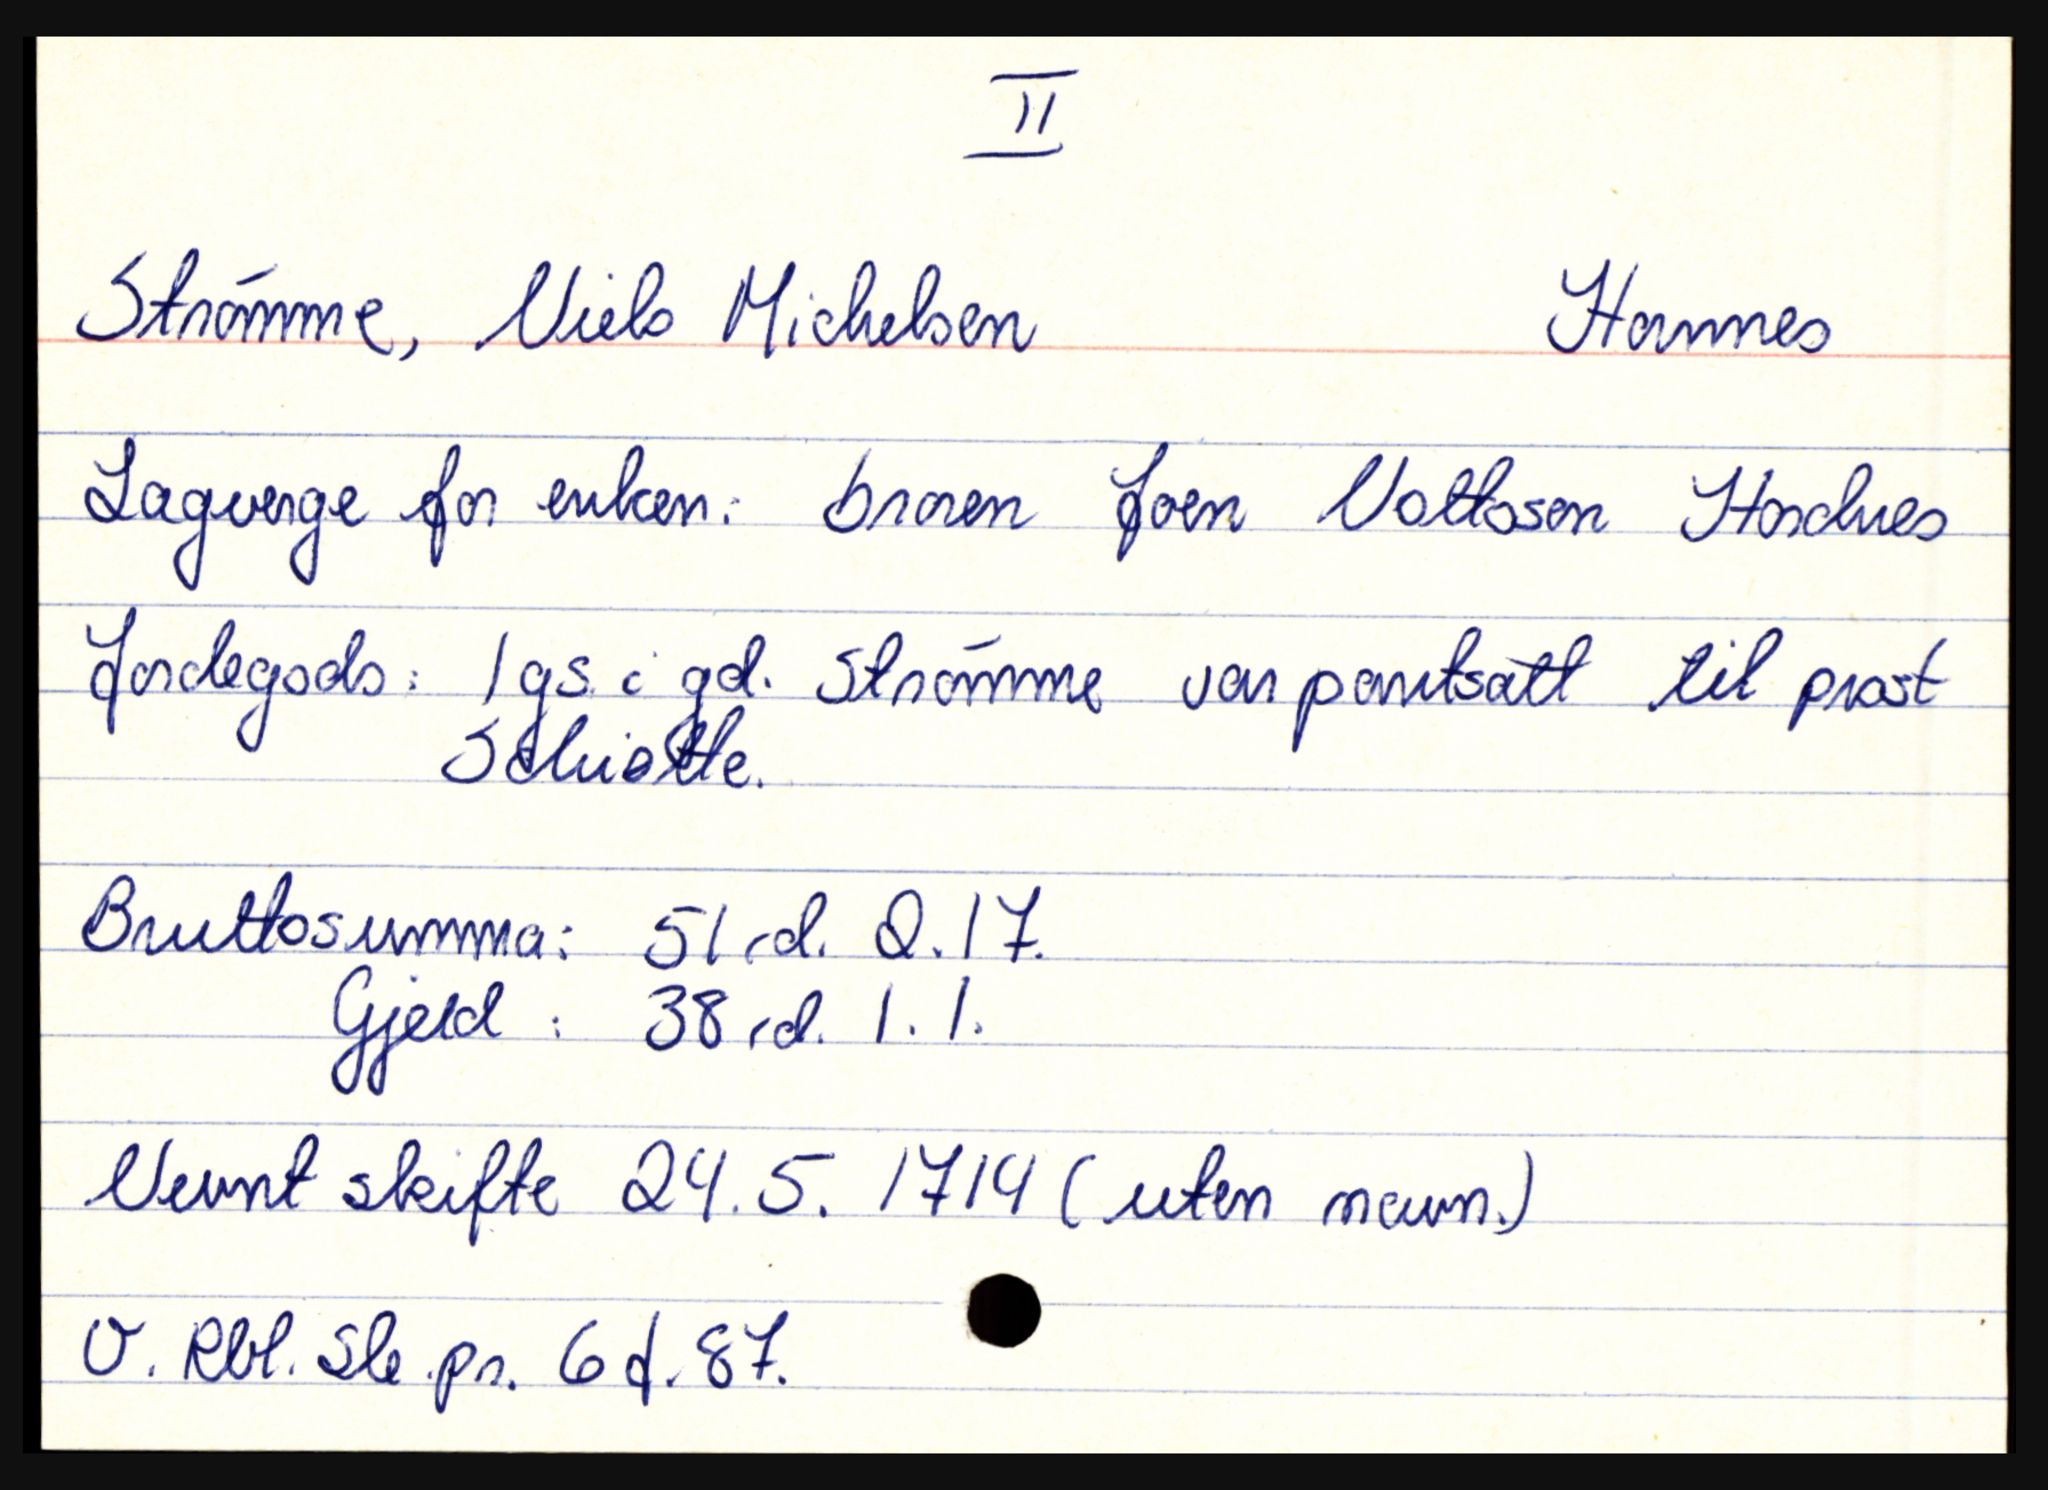 II
Strømme, Niels Michelsen Hannes
Lagverge for enken: broren Joen Nottosen Hordnes
Jordegods: 1 gs. i gd. Strømme var pantsatt til prost
Schiøtte.
Bruttosumma: 51 rd. 2. 17.
Gjeld : 38 rd. 1. 1.
Nevnt skifte 24. 5. 1714 (uten navn.)
V. Rbl. Sk. pr. 6 f. 87.